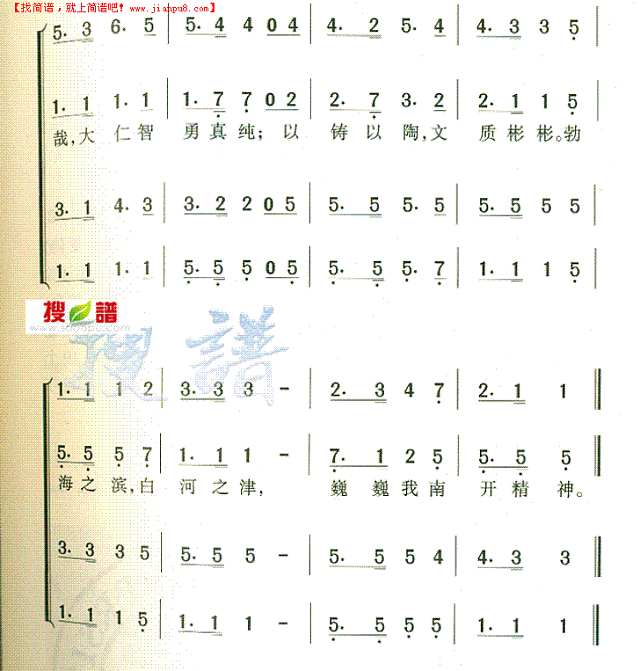 【找简谱，就上简谱吧! www.jianpu8.com】
5. 3 6. 5 | 5. 4 4 0 4 | 4. 2 5. 4 | 4. 3 3 5 |
1. 1 1. 1 | 1. 7 7 0 2 | 2. 7 3. 2 | 2. 1 1 5 |
哉,大 仁 智 勇 真 纯; 以 铸 以 陶,文 质 彬 彬。勃
3. 1 4. 3 | 3. 2 2 0 5 | 5. 5 5. 5 | 5. 5 5 5 |
1. 1 1. 1 | 5. 5 5 0 5 | 5. 5 5. 7 | 1. 1 1 5 |
搜 譜
搜 譜
1. 1 1 2 | 3. 3 3 - | 2. 3 4 7 | 2. 1 1 ‖
5. 5 5 7 | 1. 1 1 - | 7. 1 2 5 | 5. 5 5 ‖
海 之 滨,白 河 之 津, 巍 巍 我 南 开 精 神。
3. 3 3 5 | 5. 5 5 - | 5. 5 5 4 | 4. 3 3 ‖
1. 1 1 5 | 1. 1 1 - | 5. 5 5 5 | 1. 1 1 ‖